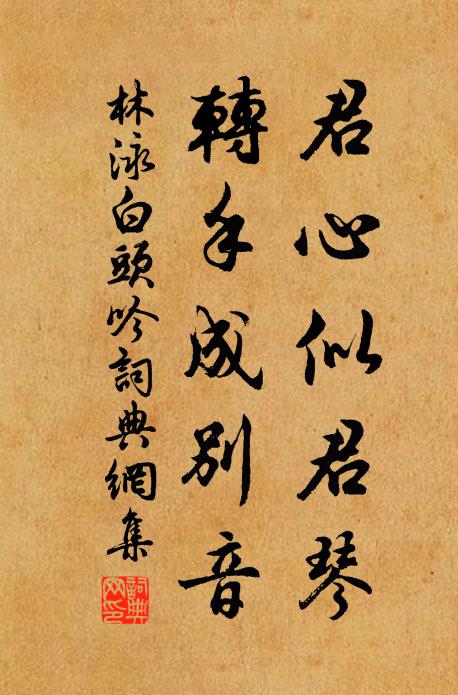 君心似君琴
轉手成別音
林泳白頭吟詞典網集
詞典網印